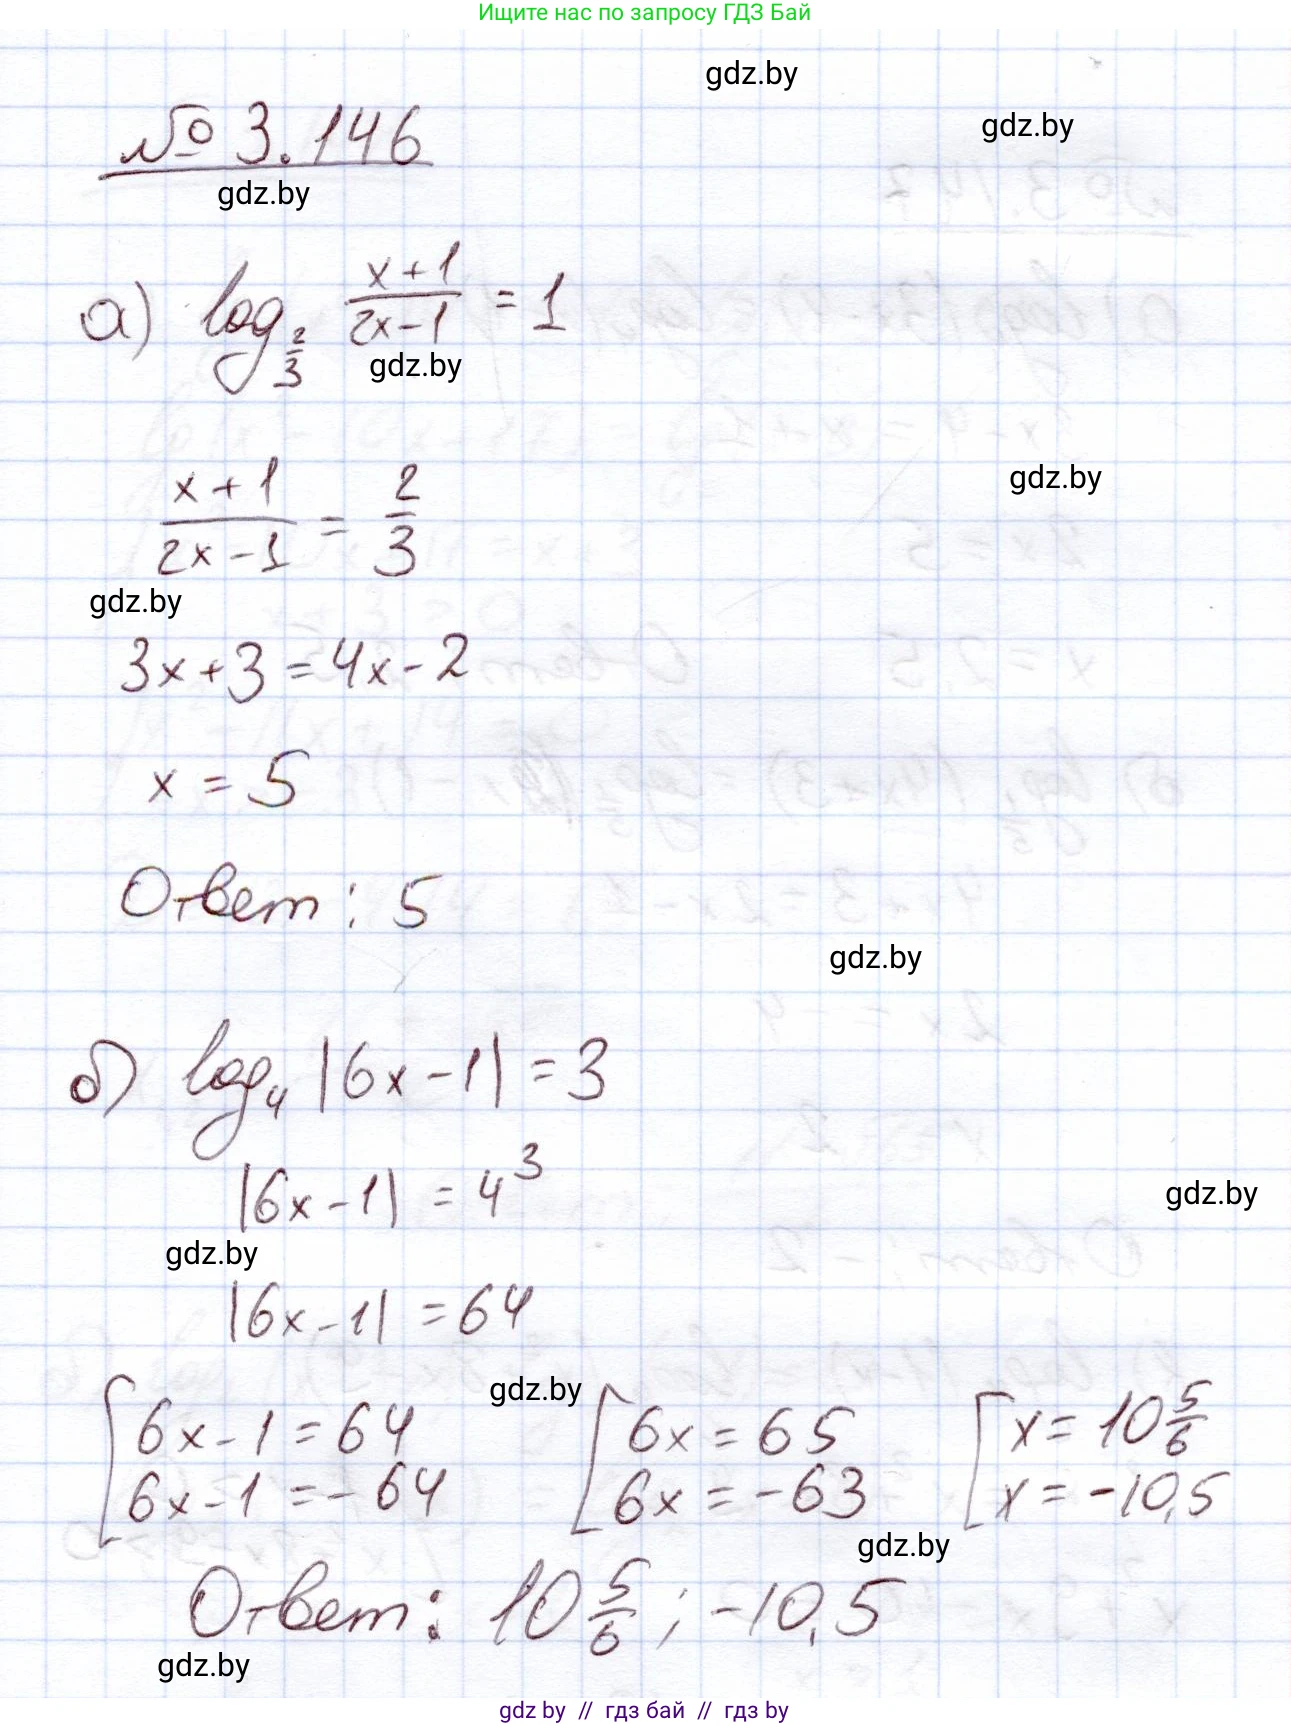 Ищите нас по запросу ГДЗ Бай
gdz.by
gdz.by
№ 3.146
gdz.by
а) log_{2/3} (x+1)/(2x−1) = 1
gdz.by
(x+1)/(2x−1) = 2/3
gdz.by
gdz.by
3x+3 = 4x−2
x = 5
Ответ: 5
gdz.by
б) log_4 |6x−1| = 3
|6x−1| = 4^3
gdz.by
gdz.by
|6x−1| = 64
gdz.by
[6x−1 = 64 [6x = 65 [x = 10 5/6
6x−1 = −64 6x = −63 x = −10,5
gdz.by
Ответ: 10 5/6 ; −10,5
gdz.by
gdz by // гдз бай // гдз by